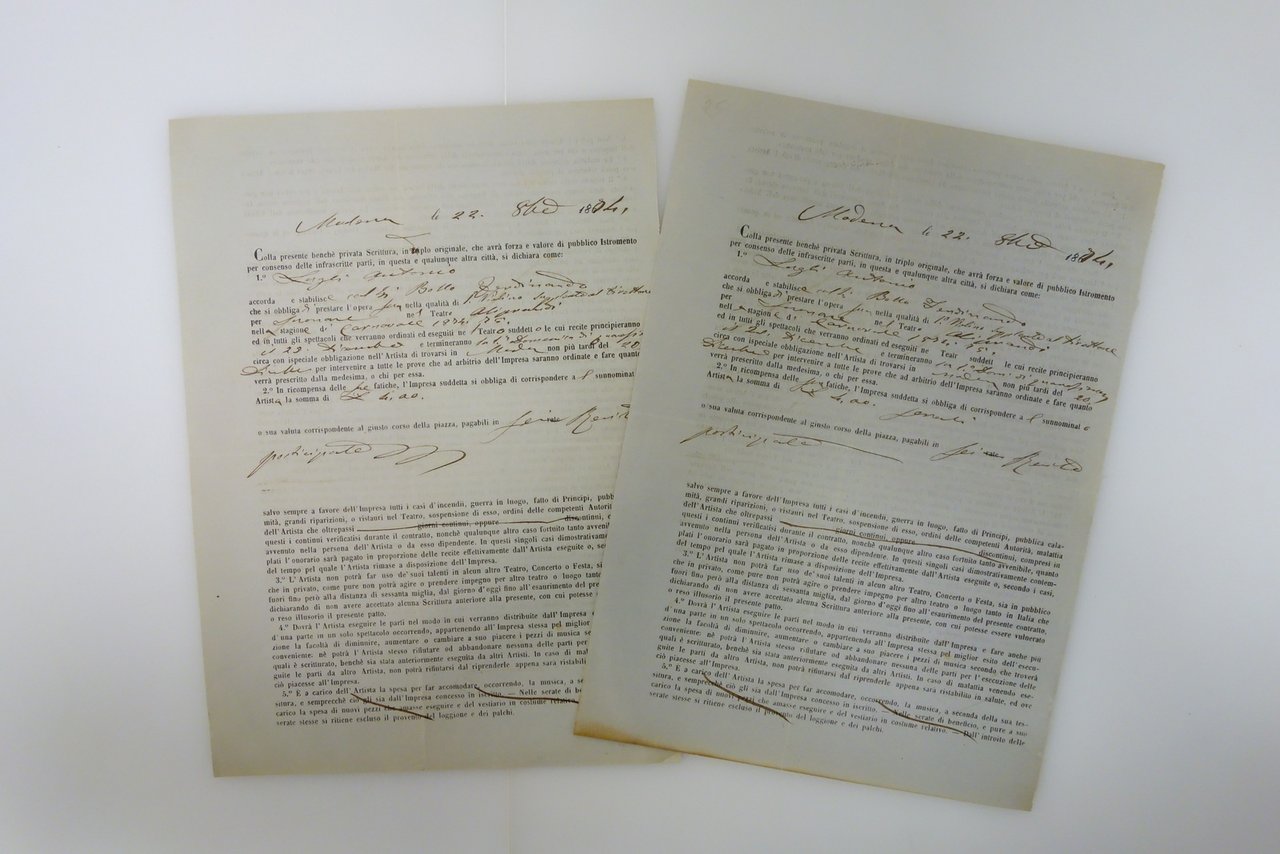 Modena li 22. 8bre 1874,
Colla presente benchè privata Scrittura, in triplo originale, che avrà forza e valore di pubblico Istromento
per consenso delle infrascritte parti, in questa e qualunque altra città, si dichiara come:
1.º Lughi Antonio
accorda e stabilisce Bello Ferdinando
che si obbliga di prestare l'opera sua nella qualità di 1º Violino
per Suonare nel Teatro
nella stagione di Carnovale 1874
ed in tutti gli spettacoli che verranno ordinati ed eseguiti ne Teatro suddetto le cui recite principieranno
il 22 Dicembre e termineranno
circa con ispeciale obbligazione nell'Artista di trovarsi in Modena non più tardi del 20
per intervenire a tutte le prove che ad arbitrio dell'Impresa saranno ordinate e fare quanto
verrà prescritto dalla medesima, o chi per essa.
2.º In ricompensa delle sue fatiche, l'Impresa suddetta si obbliga di corrispondere a l sunnominato
Artista la somma di
o sua valuta corrispondente al giusto corso della piazza, pagabili in
posticipate
salvo sempre a favore dell'Impresa tutti i casi d'incendii, guerra in luogo, fatto di Principi, pubb
mità, grandi riparizioni, o ristauri nel Teatro, sospensione di esso, ordini delle competenti Autorit
dell'Artista che oltrepassi giorni continui, oppure discontinui, c
questi i continui verificatisi durante il contratto, nonchè qualunque altro caso fortuito tanto avvenibi
avvenuto nella persona dell'Artista o da esso dipendente. In questi singoli casi dimostrativamente
plati l'onorario sarà pagato in proporzione delle recite effettivamente dall'Artista eseguite o, se
del tempo pel quale l'Artista rimase a disposizione dell'Impresa.
3.º L'Artista non potrà far uso de' suoi talenti in alcun altro Teatro, Concerto o Festa, si
in privato, come pure non potrà agire o prendere impegno per altro teatro o luogo tante
fuori fino però alla distanza di sessanta miglia, dal giorno d'oggi fino all'esaurimento del pre
dichiarando di non avere accettato alcuna Scrittura anteriore alla presente, con cui potesse
o reso illusorio il presente patto.
4.º Dovrà l'Artista eseguire le parti nel modo in cui verranno distribuite dall'Impresa
d'una parte in un solo spettacolo occorrendo, appartenendo all'Impresa stessa pel miglior
zione la facoltà di diminuire, aumentare o cambiare a suo piacere i pezzi di musica se
conveniente: nè potrà l'Artista stesso rifiutare od abbandonare nessuna delle parti per l
quali è scritturato, benchè sia stata anteriormente eseguita da altri Artisti. In caso di mal
guite le parti da altro Artista, non potrà rifiutarsi dal riprenderle appena sarà ristabili
ciò piacesse all'Impresa.
5.º È a carico dell'Artista la spesa per far accomodare, occorrendo, la musica, a se
situra, e semprecchè ciò gli sia dall'Impresa concesso in iscritto. — Nelle serate di be
carico la spesa di nuovi pezzi che amasse eseguire e del vestiario in costume relativo
serate stesse si ritiene escluso il provento del loggione e dei palchi.
Modena li 22. 8bre 1874,
Colla presente benchè privata Scrittura, in triplo originale, che avrà forza e valore di pubblico Istromento
per consenso delle infrascritte parti, in questa e qualunque altra città, si dichiara come:
1.º Lughi Antonio
accorda e stabilisce Bello Ferdinando
che si obbliga di prestare l'opera sua nella qualità di 1º Violino
per Suonare nel Teatro
nella stagione di Carnovale 1874
ed in tutti gli spettacoli che verranno ordinati ed eseguiti ne Teatr suddett le cui recite principieranno
il 22 Dicembre e termineranno
circa con ispeciale obbligazione nell'Artista di trovarsi in Modena non più tardi del 20
per intervenire a tutte le prove che ad arbitrio dell'Impresa saranno ordinate e fare quanto
verrà prescritto dalla medesima, o chi per essa.
2.º In ricompensa delle sue fatiche, l'Impresa suddetta si obbliga di corrispondere a l sunnominat o
Artista la somma di
o sua valuta corrispondente al giusto corso della piazza, pagabili in
posticipate
salvo sempre a favore dell'Impresa tutti i casi d'incendii, guerra in luogo, fatto di Principi, pubblica cala-
mità, grandi riparizioni, o ristauri nel Teatro, sospensione di esso, ordini delle competenti Autorità, malattia
dell'Artista che oltrepassi giorni continui, oppure discontinui, compresi in
questi i continui verificatisi durante il contratto, nonchè qualunque altro caso fortuito tanto avvenibile, quanto
avvenuto nella persona dell'Artista o da esso dipendente. In questi singoli casi dimostrativamente contem-
plati l'onorario sarà pagato in proporzione delle recite effettivamente dall'Artista eseguite o, secondo i casi,
del tempo pel quale l'Artista rimase a disposizione dell'Impresa.
3.º L'Artista non potrà far uso de' suoi talenti in alcun altro Teatro, Concerto o Festa, sia in pubblico
che in privato, come pure non potrà agire o prendere impegno per altro teatro o luogo tanto in Italia che
fuori fino però alla distanza di sessanta miglia, dal giorno d'oggi fino all'esaurimento del presente contratto,
dichiarando di non avere accettato alcuna Scrittura anteriore alla presente, con cui potesse essere vulnerato
o reso illusorio il presente patto.
4.º Dovrà l'Artista eseguire le parti nel modo in cui verranno distribuite dall'Impresa e fare anche più
d'una parte in un solo spettacolo occorrendo, appartenendo all'Impresa stessa pel miglior esito dell'esecu-
zione la facoltà di diminuire, aumentare o cambiare a suo piacere i pezzi di musica secondo che troverà
conveniente: nè potrà l'Artista stesso rifiutare od abbandonare nessuna delle parti per l'esecuzione delle
quali è scritturato, benchè sia stata anteriormente eseguita da altri Artisti. In caso di malattia venendo ese-
guite le parti da altro Artista, non potrà rifiutarsi dal riprenderle appena sarà ristabilito in salute, ed ove
ciò piacesse all'Impresa.
5.º È a carico dell'Artista la spesa per far accomodare, occorrendo, la musica, a seconda della sua tes-
situra, e semprecchè ciò gli sia dall'Impresa concesso in iscritto. — Nelle serate di beneficio, e pure a suo
carico la spesa di nuovi pezzi che amasse eseguire e del vestiario in costume relativo. — Dall'introito delle
serate stesse si ritiene escluso il provento del loggione e dei palchi.